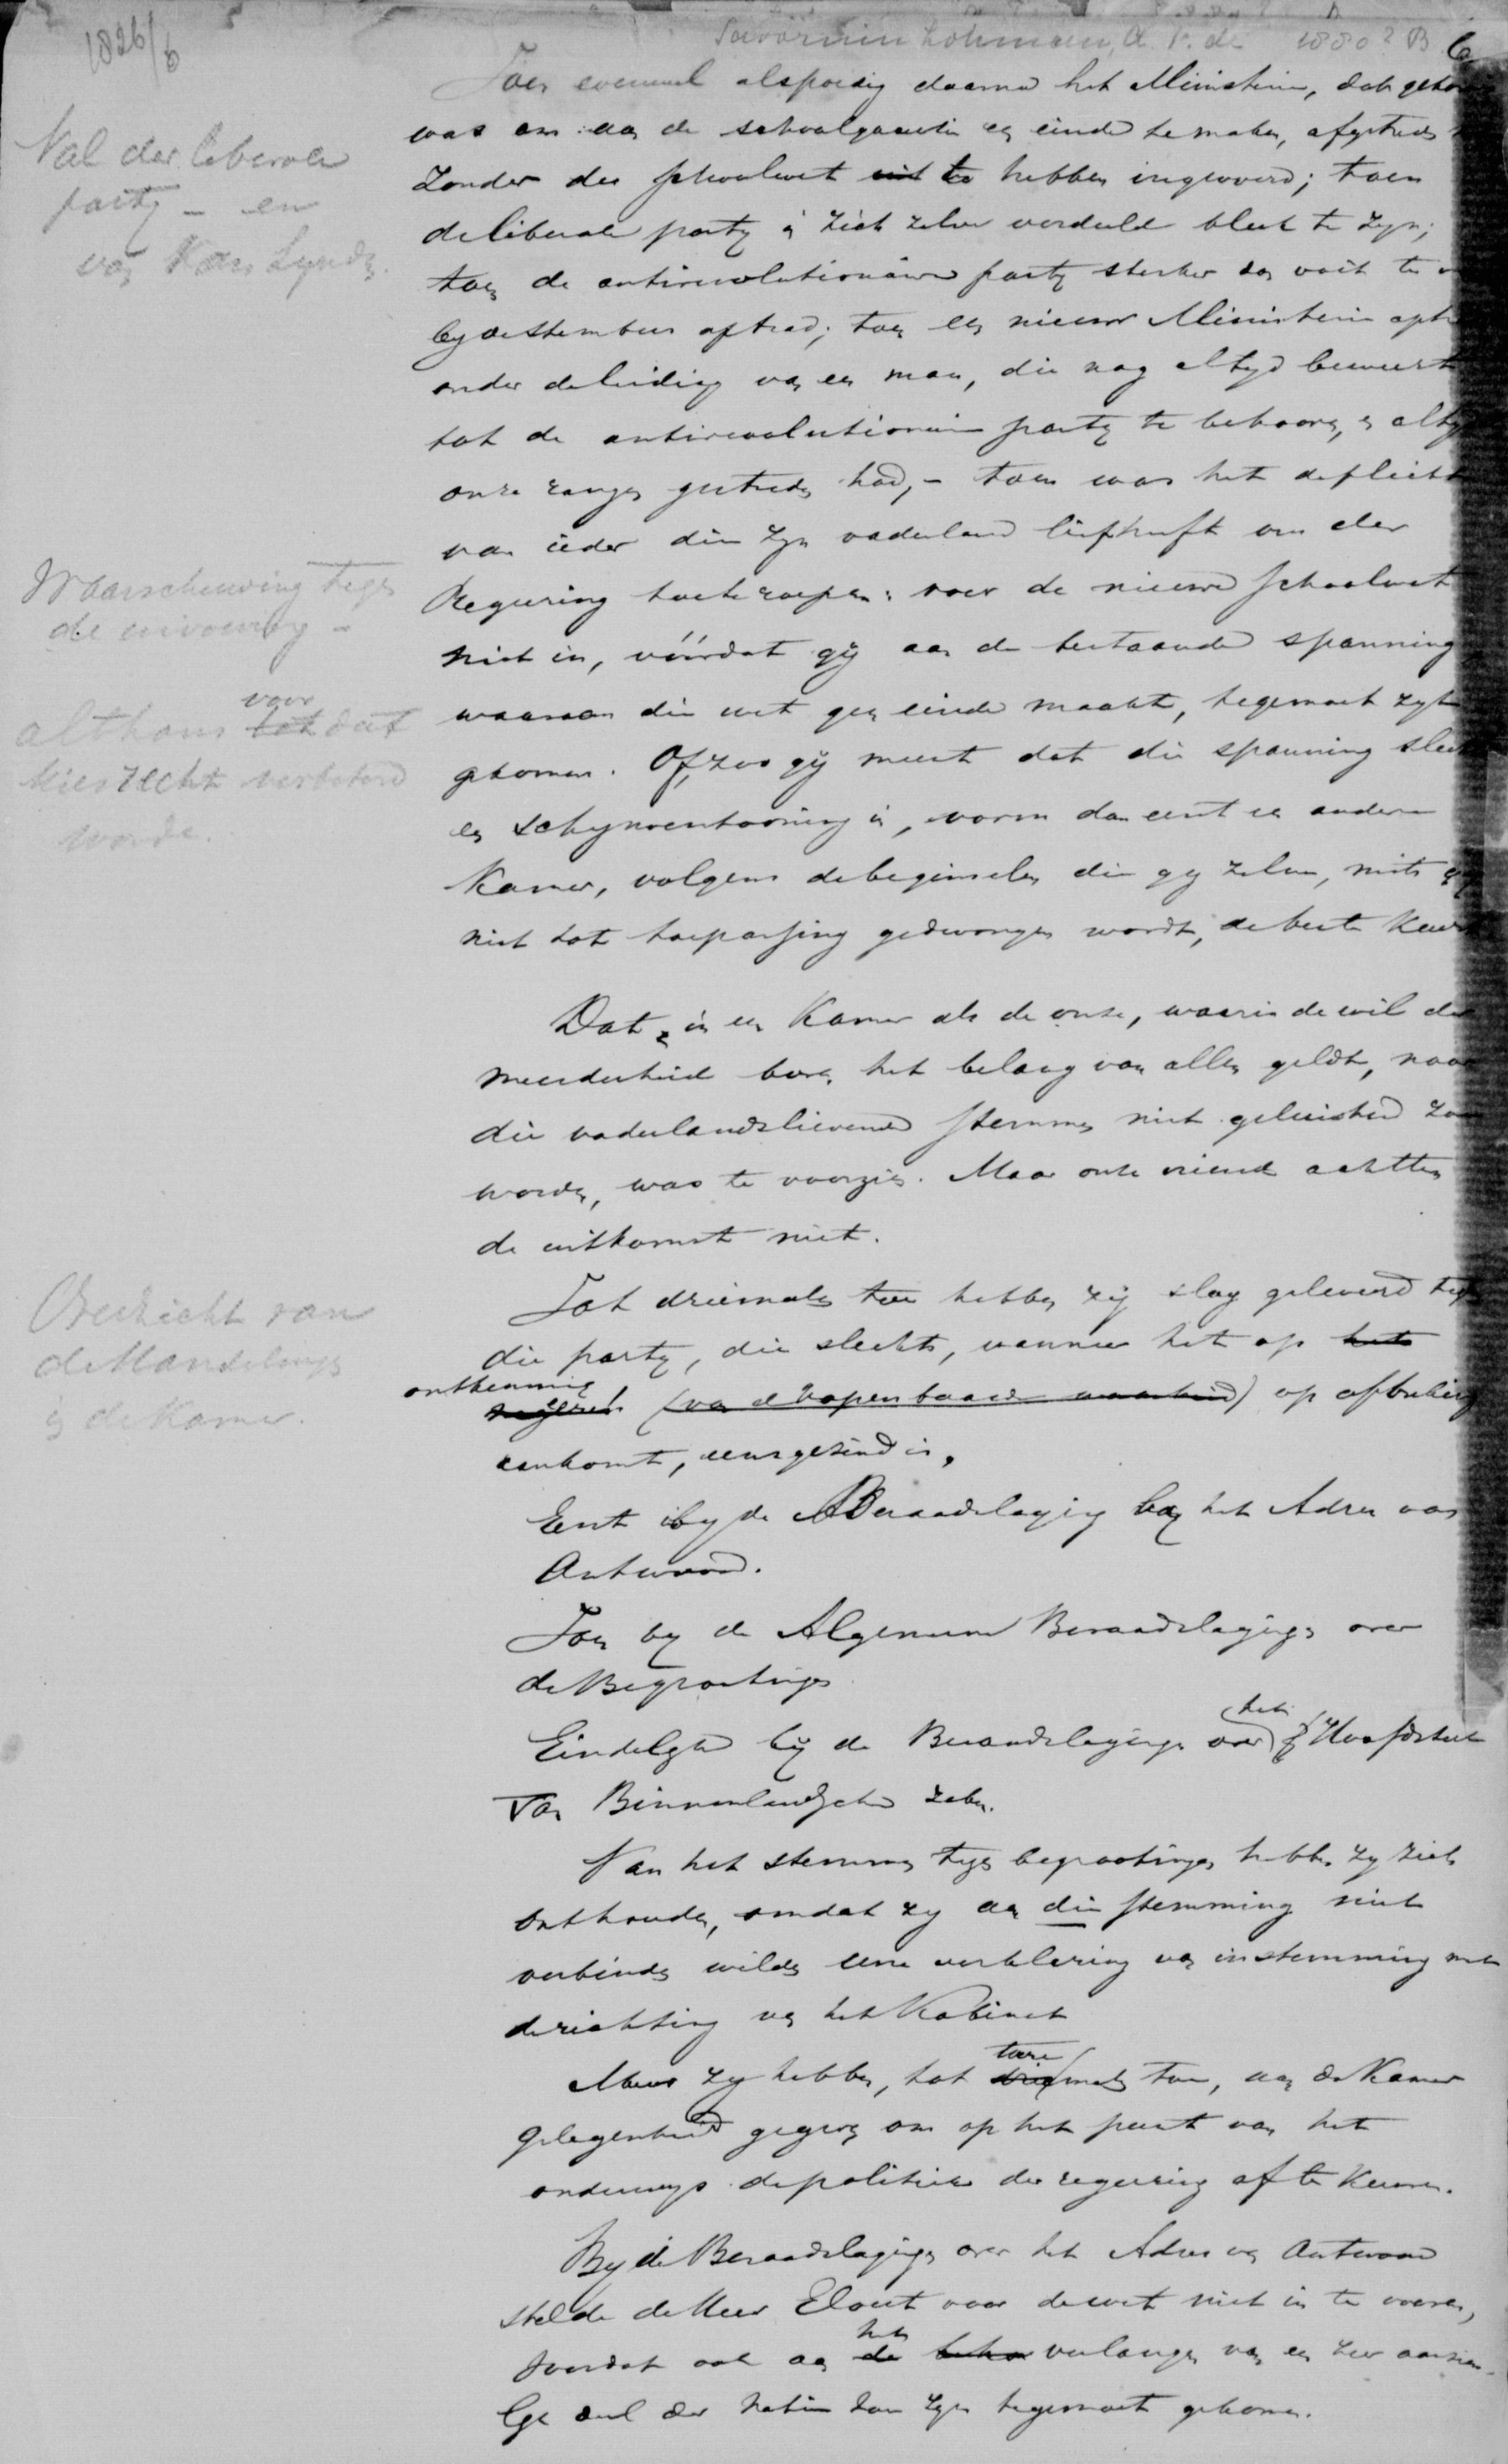 1826/6
Savornin Lohman, A. F. de 1880? B 6
Val der liberale
party – en
van Kap. Lynde.
Toen evenwel alspoedig daarna het Ministerie, dat gekomen
was om aan de schoolquaestie een einde te maken, afgetreden
zonder de schoolwet te hebben ingevoerd; toen
de liberale party in zich zelve verdeeld bleek te zyn;
toen de antirevolutionaire party sterker dan ooit te
by de stembus optrad; toen een nieuw Ministerie
onder de leiding van een man, die nog altyd beweert
tot de antirevolutionaire party te behooren, en altyd
onze rangen gestreden had, – toen was het de plicht
van ieder die zyn vaderland liefheeft om der
Waarschuwing tegen
de invoering –
Regeering toe te roepen: voer de nieuwe schoolwet
niet in, vóórdat gij aan de bestaande spanning
althans voor dat
kiesrecht verbeterd
worde.
waaraan die wet geen einde maakt, tegemoet zyt
gekomen. Of, zoo gij meent dat die spanning slechts
een schynvertooning is, vorm dan eerst een andere
Kamer, volgens de beginselen die gy zelve, mits gy
niet tot toepassing gedwongen wordt, de beste keurt
Dat, in een Kamer als de onze, waarin de wil der
meerderheid boven het belang van allen geldt, naar
die vaderlandslievende stemmen niet geluisterd zou
worden, was te voorzien. Maar onze vrienden achtten
de uitkomst niet.
Overzicht van
de Handelingen
in de Kamer.
Tot driemalen toe hebben zij slag geleverd tegen
die party, die slechts, wanneer het op het
ontkenning
(van de openbaar waarheid) op afbreking
aankomt, eensgezind is.
Eerst by de Beraadslaging by het Adres van
Antwoord.
Toen by de Algemeene Beraadslagingen over
de Begrootingen
Eindelyk bij de Beraadslagingen over het Hoofdstuk
van Binnenlandsche Zaken.
Van het stemmen tegen begrootingen hebben zy zich
onthouden, omdat zy aan die stemming niet
verbinden wilden eene verklaring van instemming met
de richting van het Kabinet
Maar zy hebben, tot twee malen toe, aan de Kamer
gelegenheid gegeven om op het punt van het
onderwys de politiek der regeering af te keuren.
By de Beraadslagingen over het Adres van Antwoord
stelde de Heer Elout voor de wet niet in te voeren,
voordat ook aan het verlangen van een zeer aanzien-
lyk deel der natie zou zyn tegemoet gekomen.